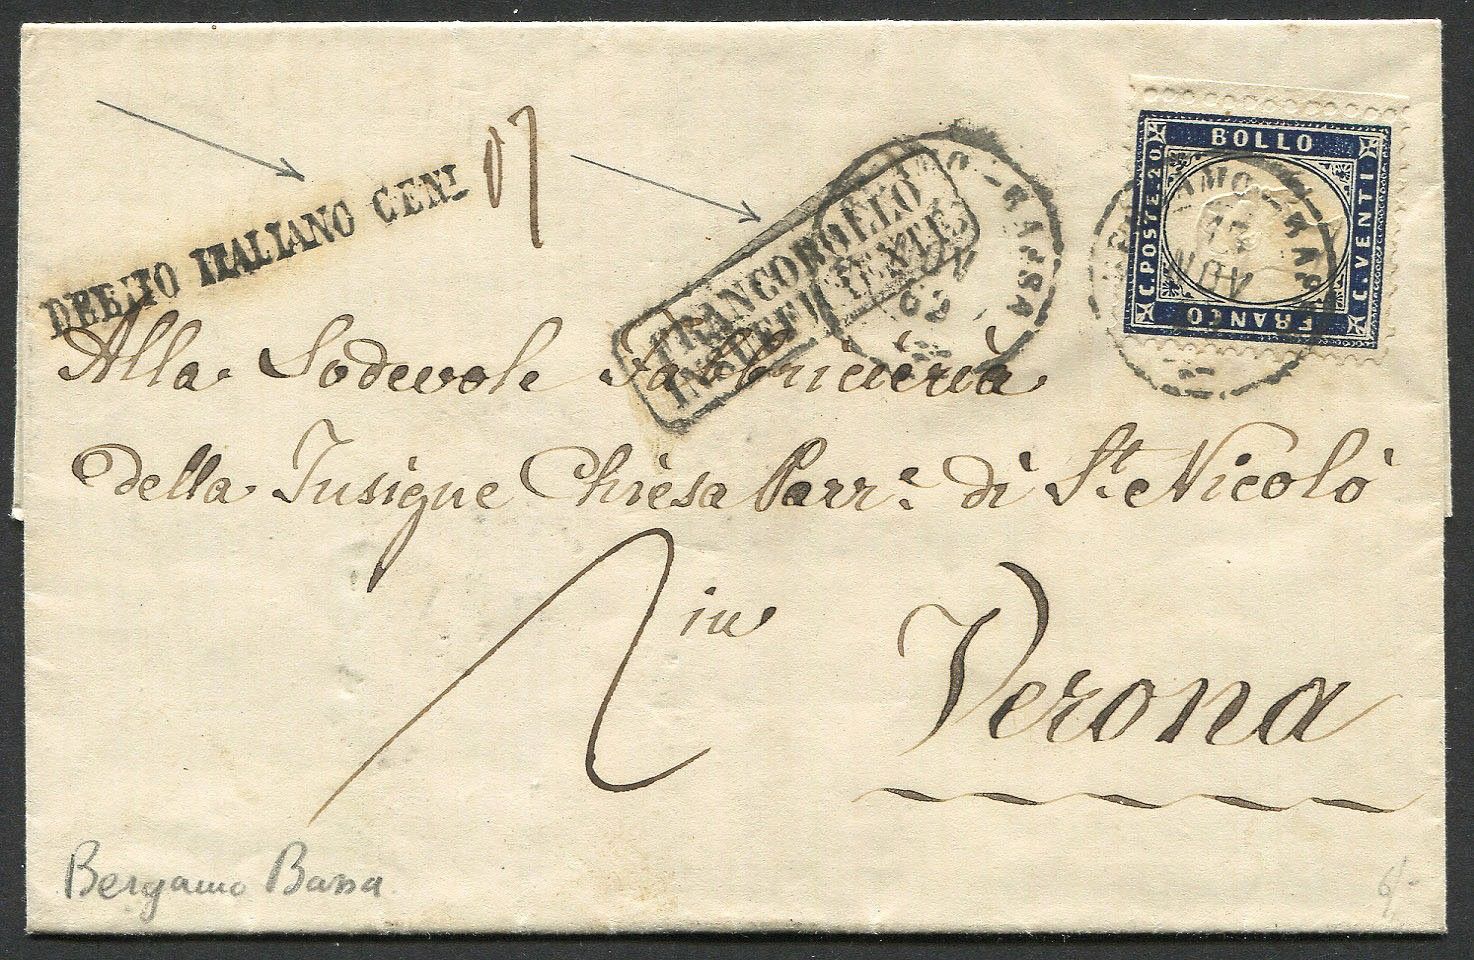 DEBITO ITALIANO CENT
07
FRANCOBOLLO
INSUFFICIENTE
BASSA
62
BOLLO
C. POSTE 20
C. VENTI
FRANCO
Alla Lodevole Fabbricieria
della Insigne Chiesa Parr.ª di S.t Nicolò
2
in
Verona
Bergamo Bassa
6/-